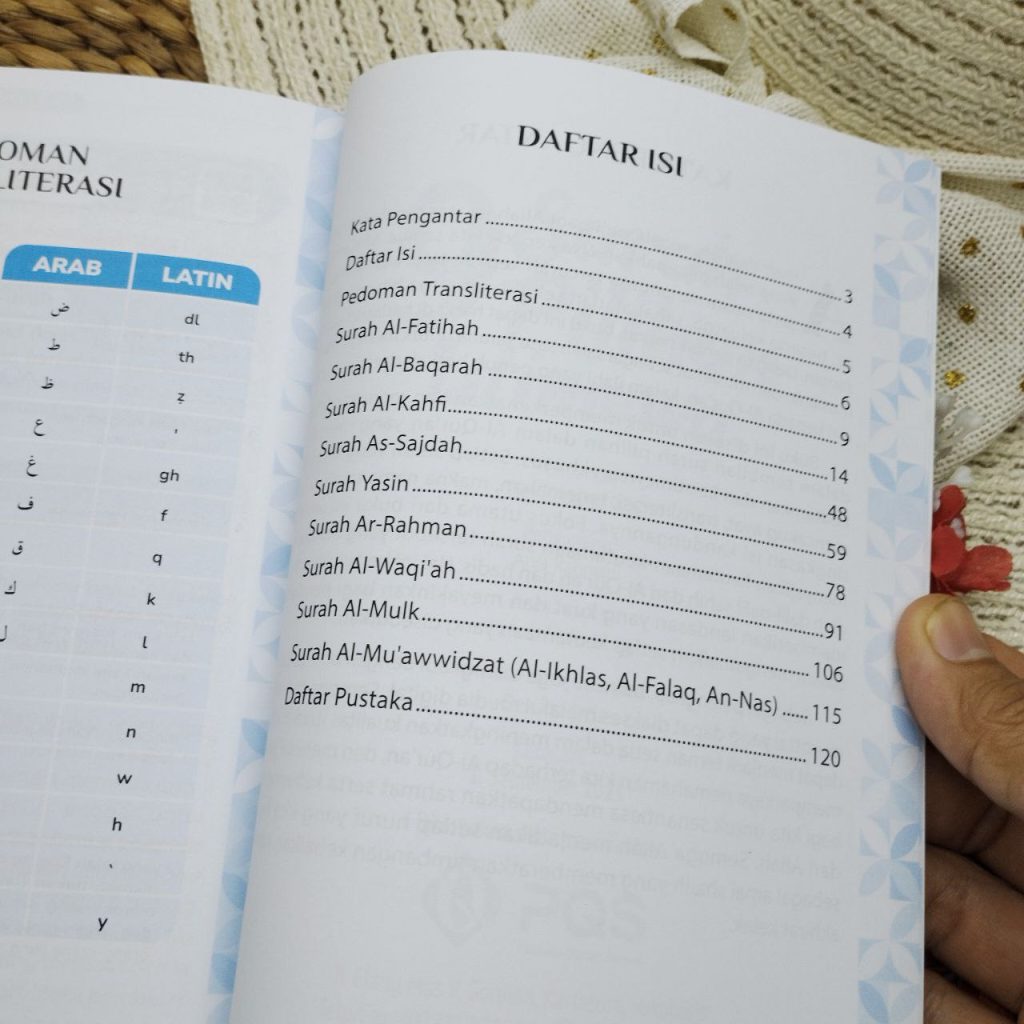 OMAN
LITERASI
ARAB LATIN
ض dl
ط th
ظ ẓ
ع '
غ gh
ف f
ق q
ك k
ل l
m
n
w
h
`
y
DAFTAR ISI
Kata Pengantar 3
Daftar Isi 4
Pedoman Transliterasi 5
Surah Al-Fatihah 6
Surah Al-Baqarah 9
Surah Al-Kahfi 14
Surah As-Sajdah 48
Surah Yasin 59
Surah Ar-Rahman 78
Surah Al-Waqi'ah 91
Surah Al-Mulk 106
Surah Al-Mu'awwidzat (Al-Ikhlas, Al-Falaq, An-Nas) 115
Daftar Pustaka 120